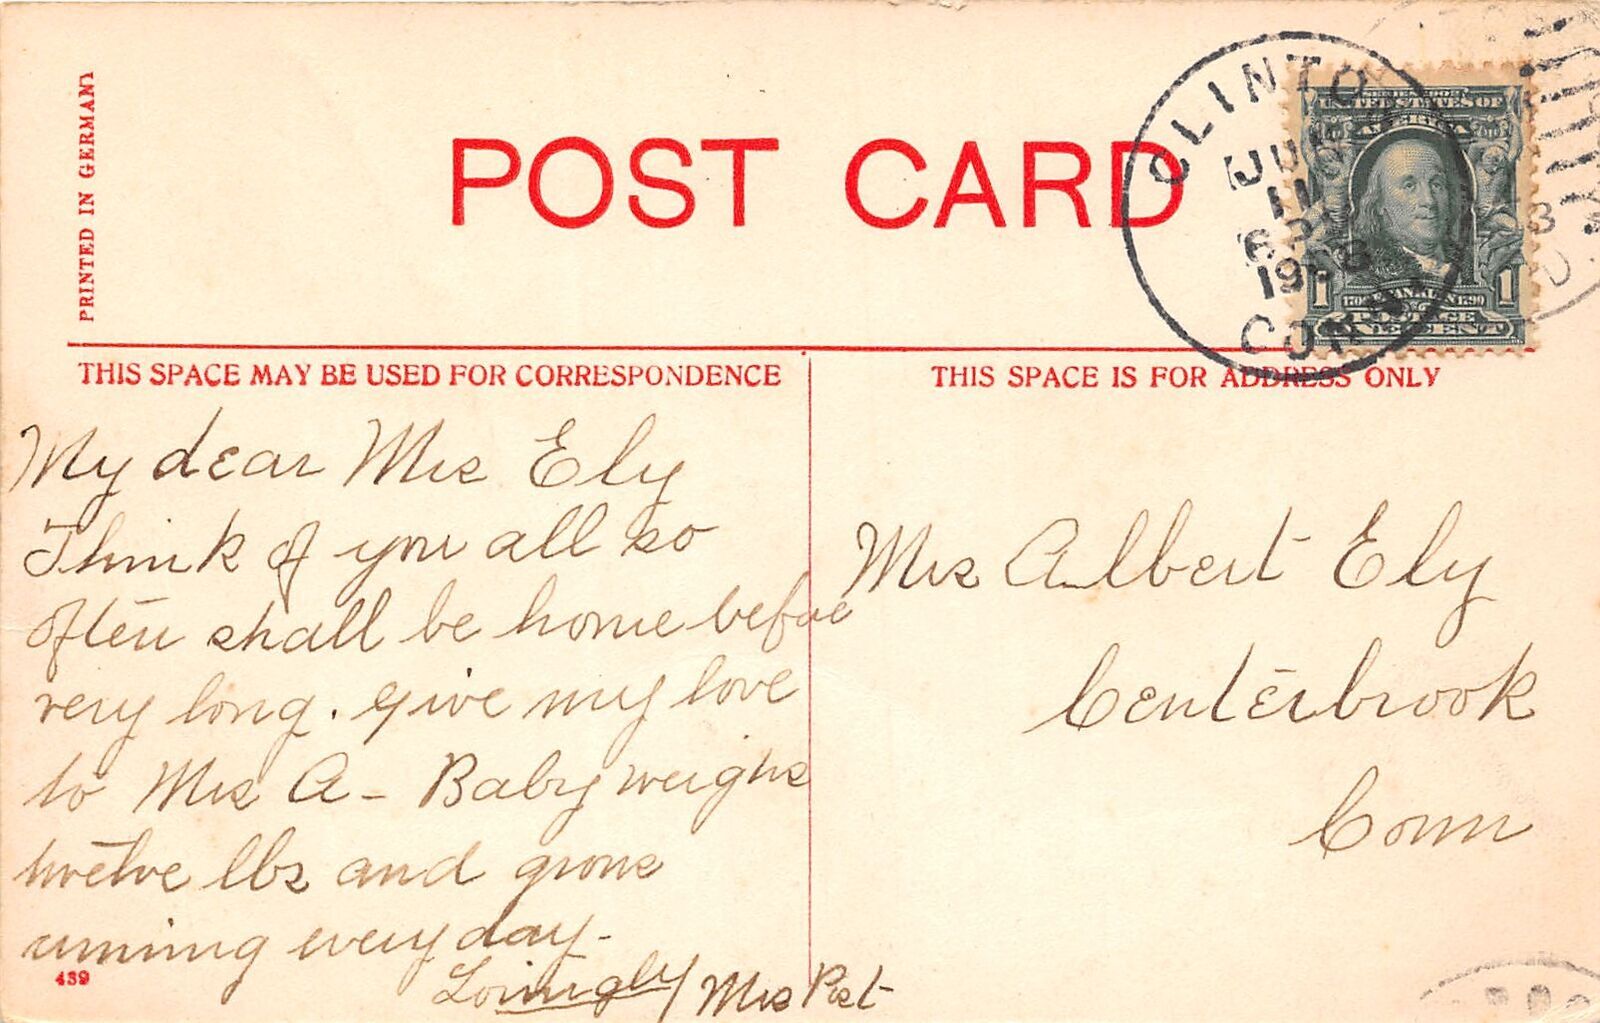 PRINTED IN GERMANY
POST CARD
CLINTO
JUN
11
6 P
1908
CONN.
SERIES 1902
UNITED STATES OF
AMERICA
1 1
1706 FRANKLIN 1790
POSTAGE
ONE CENT
THIS SPACE MAY BE USED FOR CORRESPONDENCE
THIS SPACE IS FOR ADDRESS ONLY
My dear Mrs Ely
Think of you all so
often shall be home before
very long. Give my love
to Mrs A - Baby weighs
twelve lbs and grows
cunning every day -
Lovingly / Mrs Post
439
Mrs Albert Ely
Centerbrook
Conn